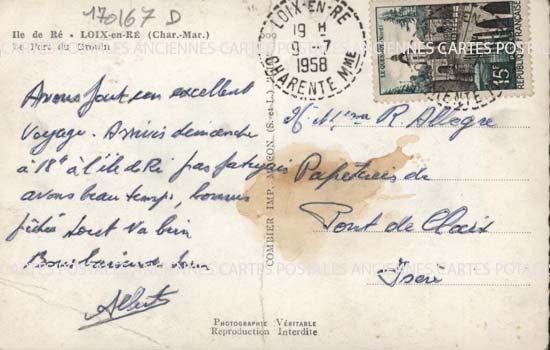 170167 D
Ile de Ré - LOIX-en-RÉ (Char.-Mar.)
Le Port du Grouin
LOIX-EN-RÉ
19 H
9 - 7
1958
CHARENTE Mme
15F
REPUBLIQUE FRANÇAISE
Avons fait un excellent
Voyage. Arrivés dimanche
à 18h à l'île de Ré pas fatigués
avons beau temps, bonnes
pêches tout va bien
Bons baisers
Albert
R. Allegre
Papeteries de
Pont de Claix
Isère
COMBIER IMP. MACON (S.-et-L.)
CARTES POSTALES ANCIENNES CARTES POSTALES ANCIENNES
PHOTOGRAPHIE VÉRITABLE
Reproduction Interdite